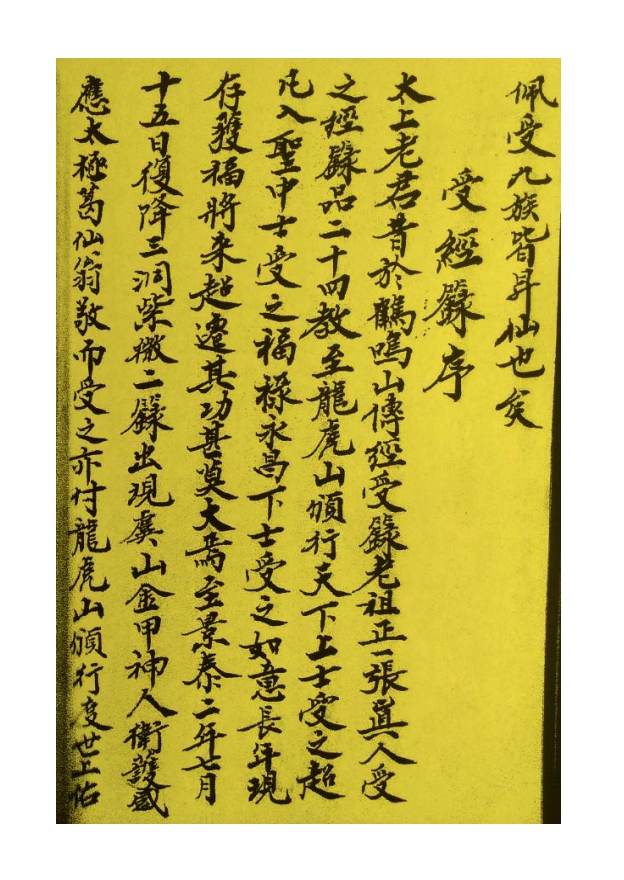 佩受九族皆昇仙也矣
受經籙序
太上老君昔於鶴鳴山傳經受籙老祖正一張眞人受
之經籙品二十四教至龍虎山頒行天下上士受之超
凡入聖中士受之福祿永昌下士受之如意長年現
存獲福將來超遷其功甚莫大焉至景泰二年七月
十五日復降三洞紫微二籙出現虞山金甲神人衛護感
應太極葛仙翁敬而受之亦付龍虎山頒行度世上佑